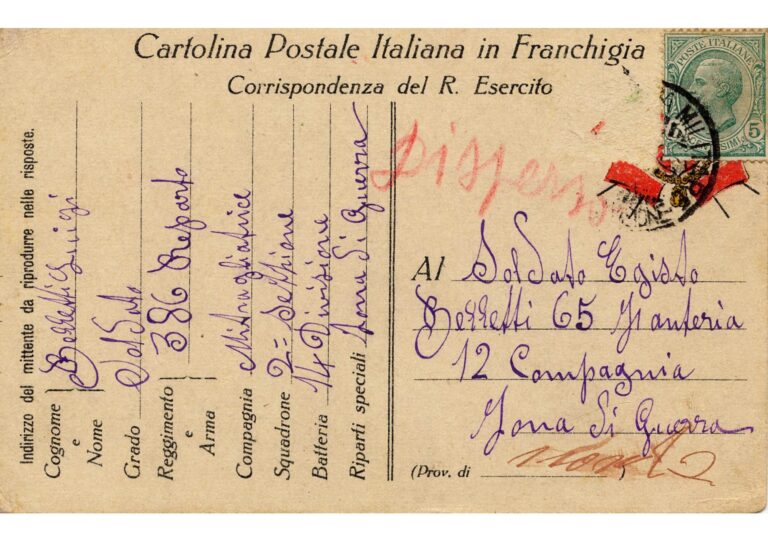 Cartolina Postale Italiana in Franchigia
Corrispondenza del R. Esercito
POSTE ITALIANE
5
Disperso
Al Soldato Egisto
Berretti 65 Fanteria
12 Compagnia
Zona Di Guerra
(Prov. di )
Indirizzo del mittente da riprodurre nelle risposte.
Cognome e Nome Berretti Luigi
Grado Soldato
Reggimento e Arma 386 Reparto
Compagnia Mitragliatrice
Squadrone 2= Sezione
Batteria 14 Divisione
Riparti speciali Zona Di Guerra